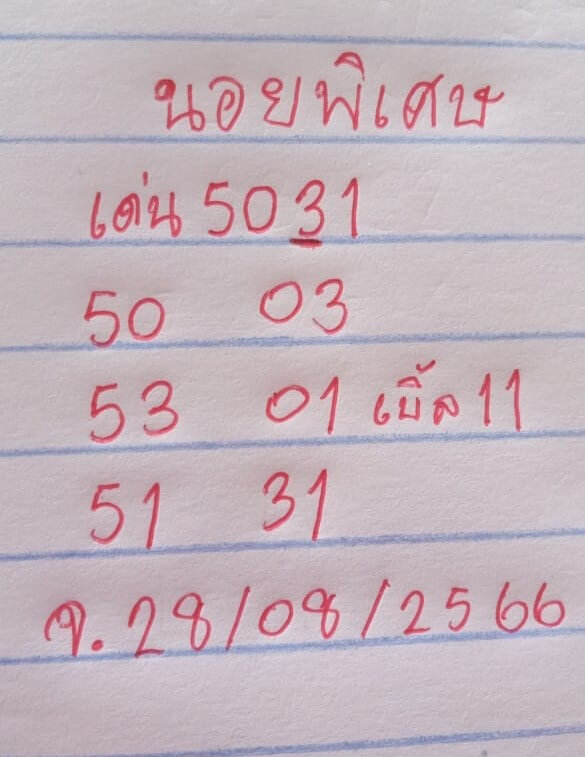 นอยพิเศษ
เด่น 5031
50 03
53 01 เบิ้ล 11
51 31
จ. 28/08/2566